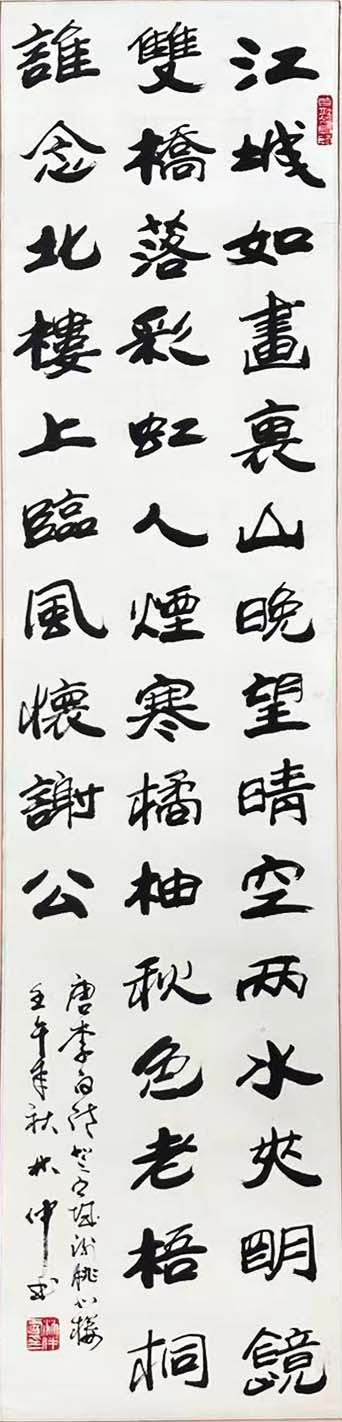 江城如畫裏山晚望晴空两水夾明鏡
雙橋落彩虹人煙寒橘柚秋色老梧桐
誰念北樓上臨風懷謝公
唐李白詩登宣城謝朓北樓
壬午年秋林仲